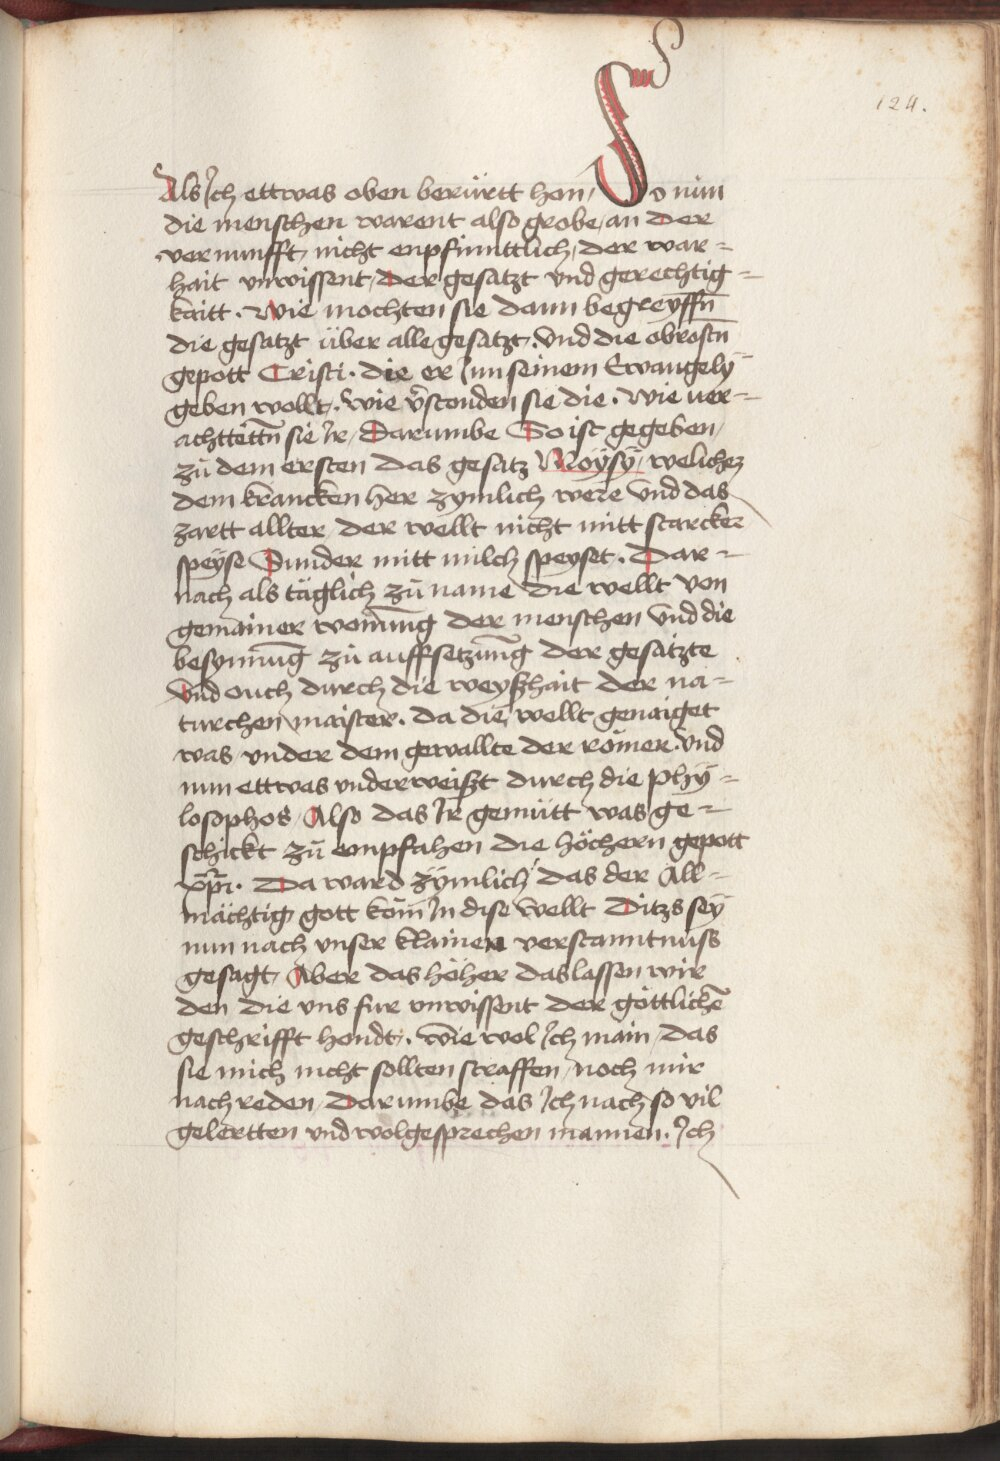 124.
Als Ich ettwas oben berürtt hon / So nun
die menschen warent also grobe / an der
vernunfft / nicht enpfinnttlich / der war=
hait vnwissent / der gesatzt vnd gerechtig=
kaitt . Wie mochten sie dann begreyffn̄
die gesatzt über alle gesatzt . vnd die obrostn̄
gepott Cristi . die er Inn seinem Ewangely
geben wollt . wie v̄stonden sie die . wie ver=
achttettn̄ sie Ir / Darumbe So ist gegeben /
zů dem ersten das gesatz Moÿsÿ / welichez
dem krancken her zymlich were vnd das
zartt allter / der wellt nicht mitt starcker
speÿse Sunder mitt milch speyset . Dar=
nach als täglich zů name die wellt von
gemainer wonūng der menschen vnd die
besynnūg zů auffsetzūng der gesätzte
vnd ouch durch die weyßhait der na=
turchen maister . da die wellt genaiget
was vnder dem gewallte der römer . vnd
nun ettwas vnderweißt durch die phÿ=
losophos / Also das Ir gemütt was ge=
schickt zů empfahen die höchern gepott
xp̄i . Da ward zÿmlich das der All=
mächtig gott kōm In dise wellt Ditzs seÿ
nun nach vnser klainen verstanntnuss
gesagt / Aber das höher das lassen wir
den die vns fur vnwissent der göttlichē
geschrifft hondt . wie wol Ich main / das
sie mich nicht sollten straffen / noch mir
nach reden / Darumbe das Ich nach so vil
gelertten vnd wolgesprechen mannen . Ich